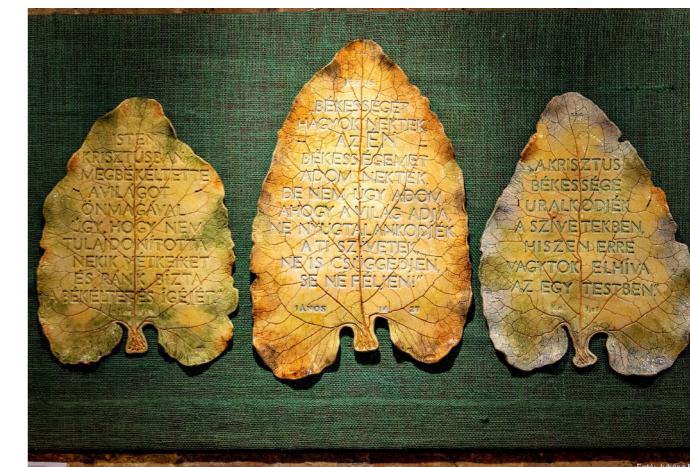 ISTEN
KRISZTUSBAN
MEGBÉKÉLTETTE
A VILÁGOT
ÖNMAGÁVAL
ÚGY, HOGY NEM
TULAJDONÍTOTTA
NEKIK VÉTKEIKET
ÉS RÁNK BÍZTA
A BÉKÉLTETÉS IGÉJÉT."
BÉKESSÉGET
HAGYOK NEKTEK
AZ ÉN
BÉKESSÉGEMET
ADOM NEKTEK
DE NEM ÚGY ADOM,
AHOGY A VILÁG ADJA.
NE NYUGTALANKODJÉK
A TI SZÍVETEK,
NE IS CSÜGGEDJEN,
SE NE FÉLJEN!"
JÁNOS 14 27
„A KRISZTUS
BÉKESSÉGE
URALKODJÉK
A SZÍVETEKBEN,
HISZEN ERRE
VAGYTOK ELHÍVA
AZ EGY TESTBEN."